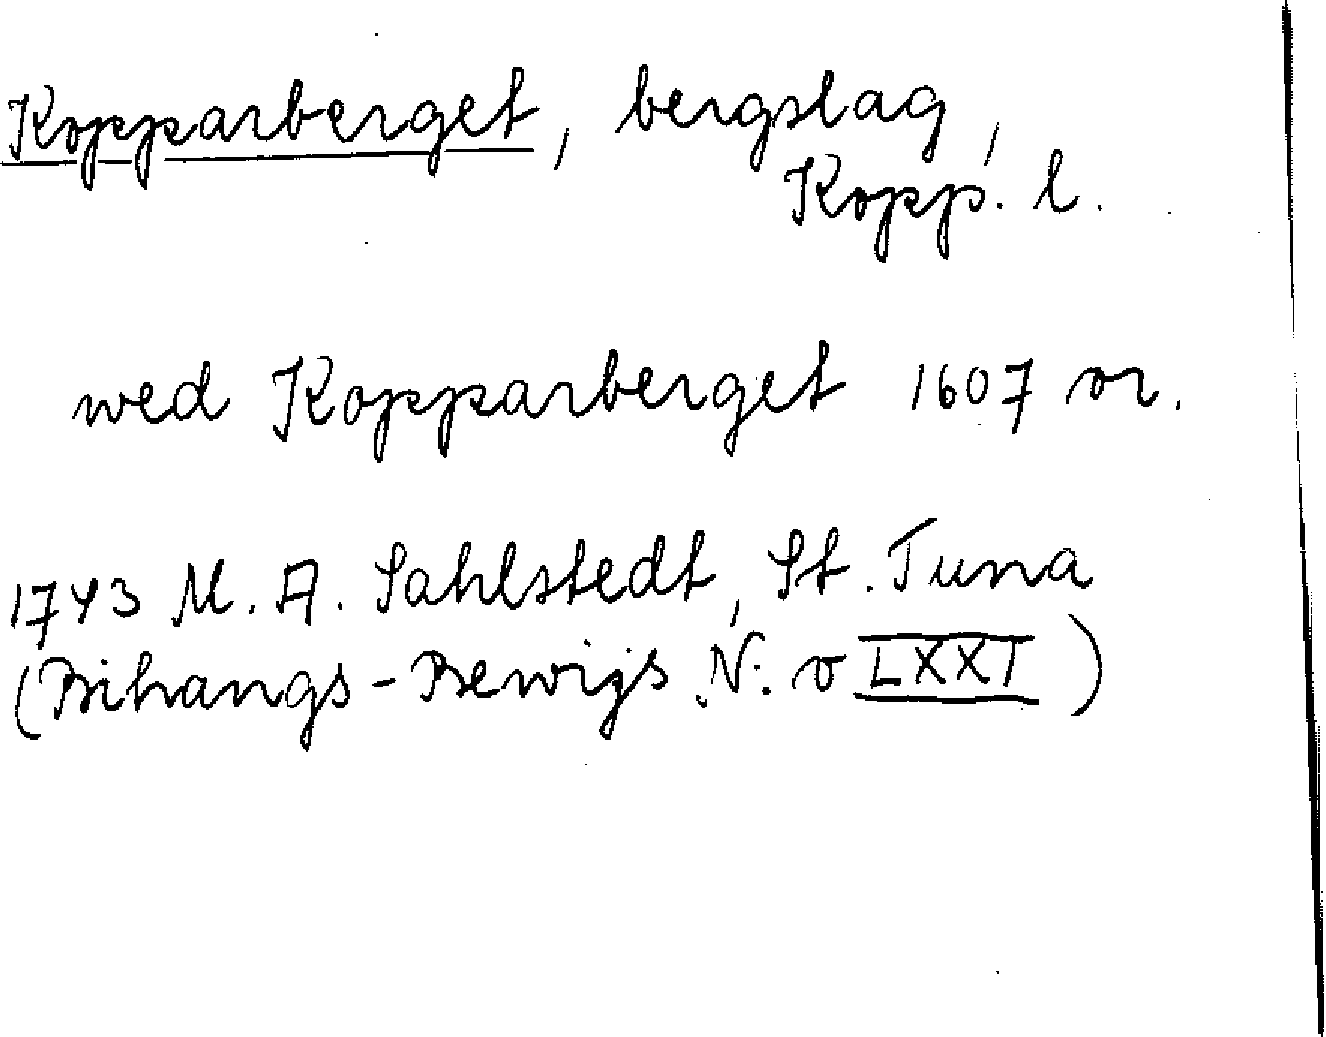 Kopparberget, bergslag,
Kopp. l.
wed Kopparberget 1607 or.
1743 M. A. Sahlstedt, St. Tuna
(Bihangs-Bewijs N: o LXXI)